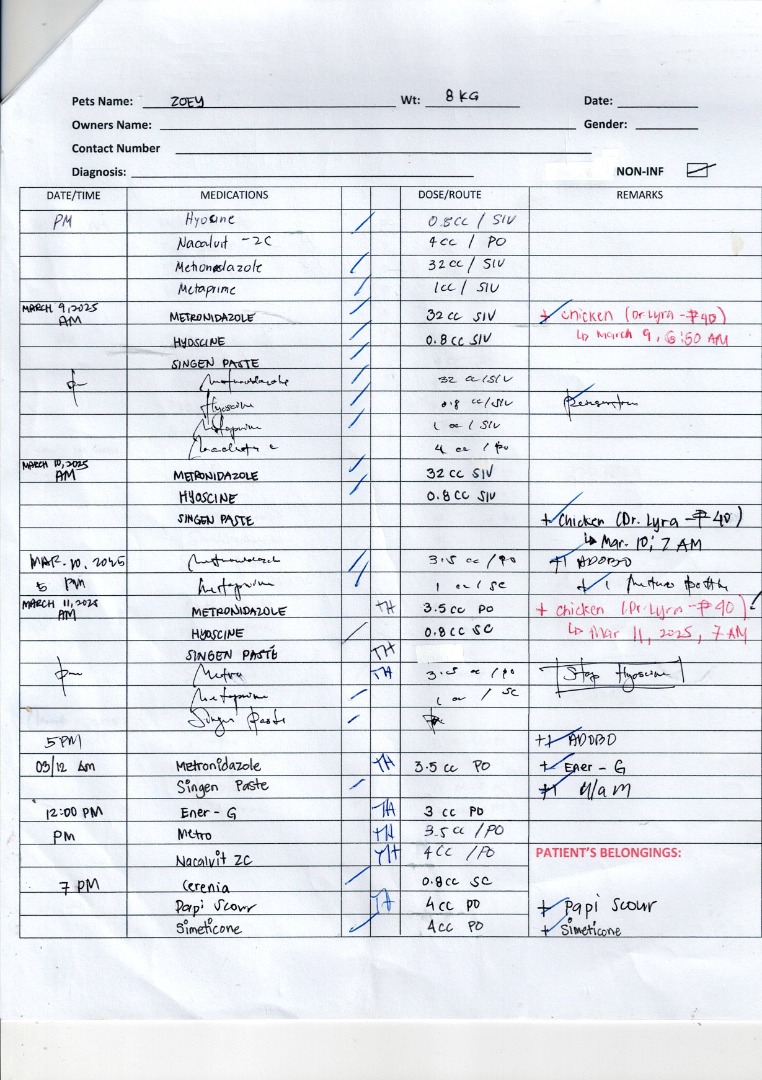 Pets Name: ZOEY Wt: 8 KG Date:
Owners Name: Gender:
Contact Number
Diagnosis: NON-INF
DATE/TIME MEDICATIONS DOSE/ROUTE REMARKS
PM Hyoscine 0.8cc / SIV
Nacalvit -2C 4cc / PO
Metronidazole 32 cc / SIV
Metaprime 1cc / SIV
MARCH 9, 2025
AM METRONIDAZOLE 32 cc SIV + chicken (Dr. Lyra - ₱40)
HYOSCINE 0.8 cc SIV ↳ March 9, 6:50 AM
SINGEN PASTE
Metronidazole 32 cc/SIV
Hyoscine 0.8 cc/SIV
Metaprime 1 cc / SIV
4 cc / PO
MARCH 10, 2025
AM METRONIDAZOLE 32 cc SIV
HYOSCINE 0.8 cc SIV
SINGEN PASTE + Chicken (Dr. Lyra - ₱40)
↳ Mar. 10; 7 AM
MAR. 10, 2025 Metronidazole 3.5 cc / PO +1 ADOBO
5 PM Metaprime 1 cc / SC + 1
MARCH 11, 2025
AM METRONIDAZOLE TH 3.5 cc PO + chicken (Dr. Lyra - ₱40)
HYOSCINE 0.8cc SC ↳ Mar 11, 2025, 7 AM
SINGEN PASTE TH
Metro TH 3.5 cc / PO Stop Hyoscine
Metaprime 1 cc / SC
Singen Paste
5 PM +1 ADOBO
03/12 Am Metronidazole TH 3.5 cc PO + Ener - G
Singen Paste +1 u/a m
12:00 PM Ener - G TH 3 cc PO
PM Metro TH 3.5 cc / PO
Nacalvit 2C TH 4cc / PO PATIENT'S BELONGINGS:
7 PM Cerenia 0.8cc SC
Papi Scour TH 4cc PO + Papi Scour
Simeticone 4cc PO + Simeticone